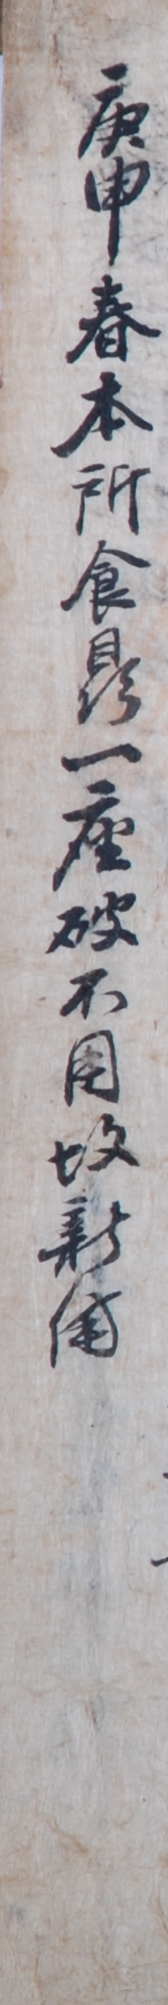 庚申春本所食鼎一座破不用故新備